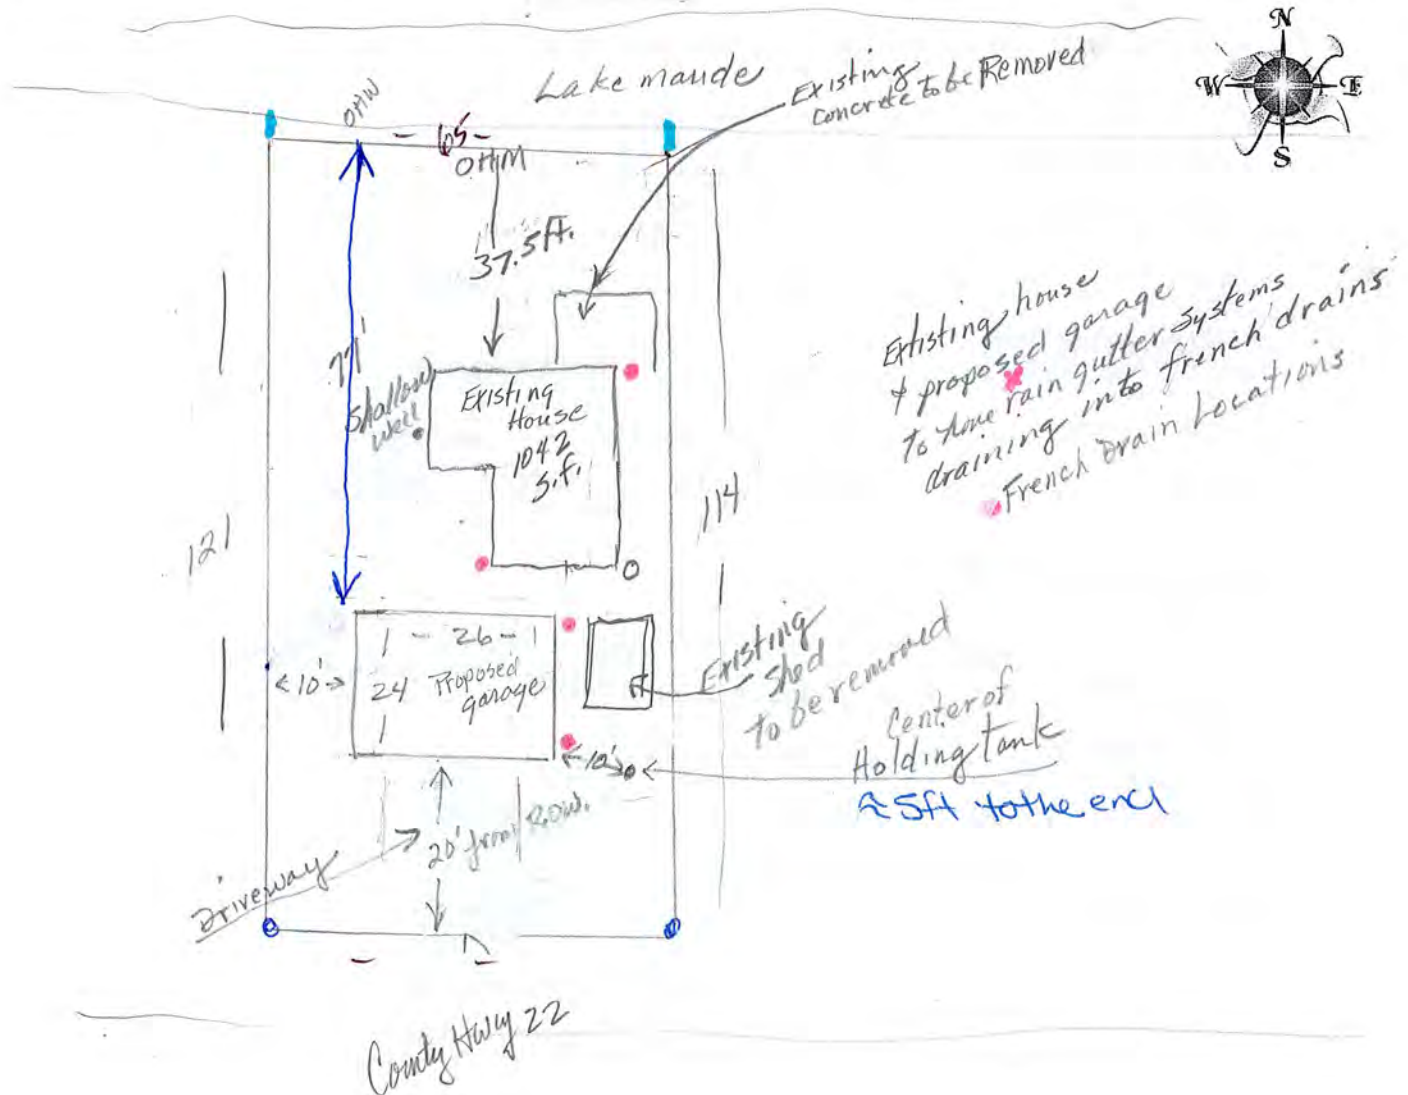 N
W
E
S
Lake maude
Existing
concrete to be Removed
OHW
- 65 -
OHM
37.5ft.
77'
Shallow
well
Existing
House
1042
S.f.
Existing house
& proposed garage
to have rain gutter systems
draining into french drains
French Drain Locations
121
114
- 26 -
24 Proposed
garage
<10'>
Existing
Shed
to be removed
Center of
Holding tank
≈ 5ft to the end
<10'>
20' from R.O.W.
Driveway
County Hwy 22